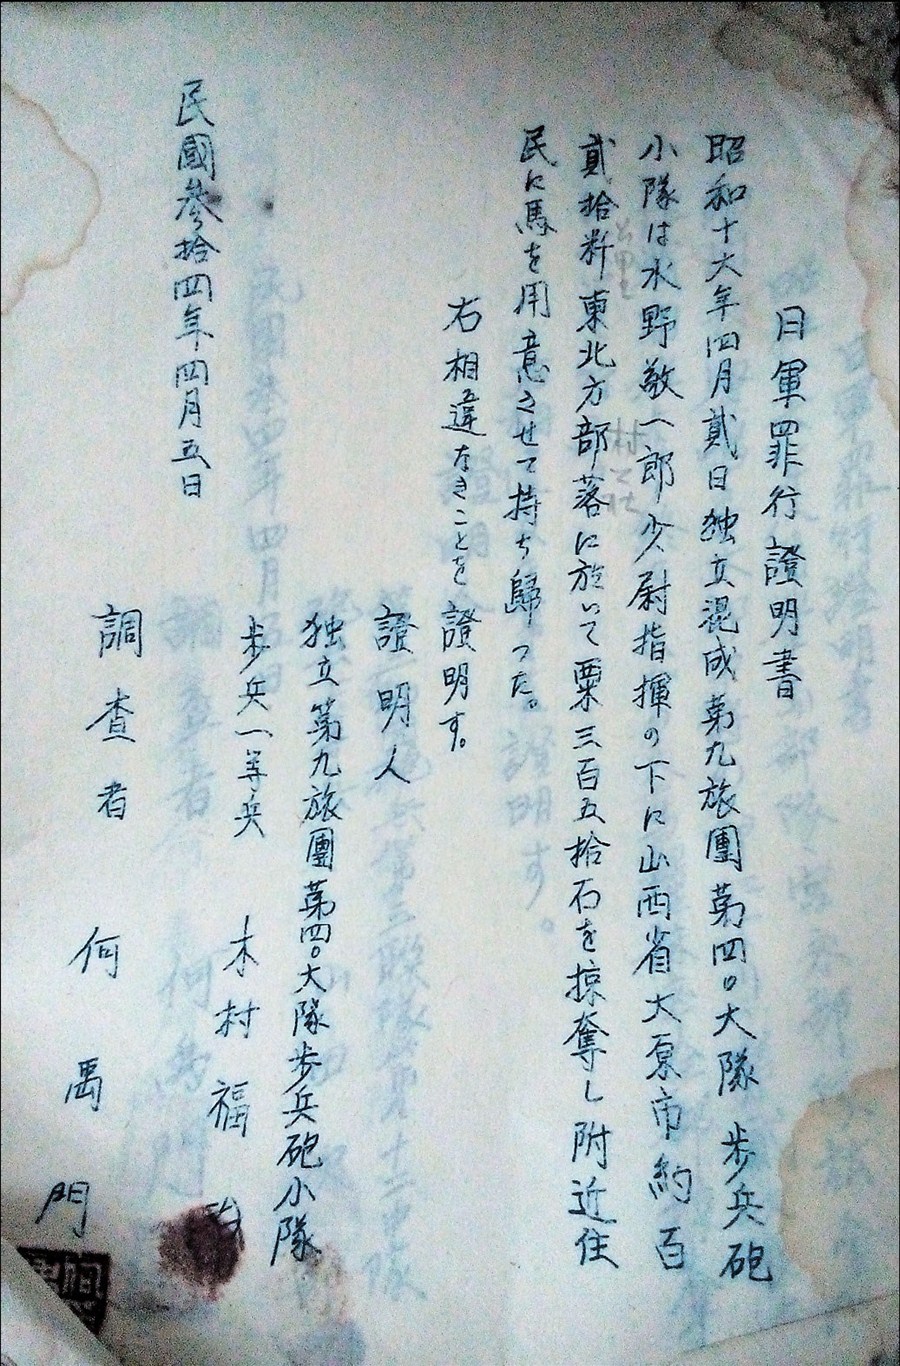 日軍罪行證明書
昭和十六年四月貳日独立混成第九旅團第四〇大隊歩兵砲
小隊は水野敬一郎少尉指揮の下に山西省大原市約百
貳拾粁東北方部落に於いて粟三百五拾石を掠奪し附近住
民に馬を用意させて持ち歸った。
右相違なきことを證明す。
證明人
独立第九旅團第四〇大隊歩兵砲小隊
歩兵一等兵 木村福治
民國參拾四年四月五日
調査者 何禹門